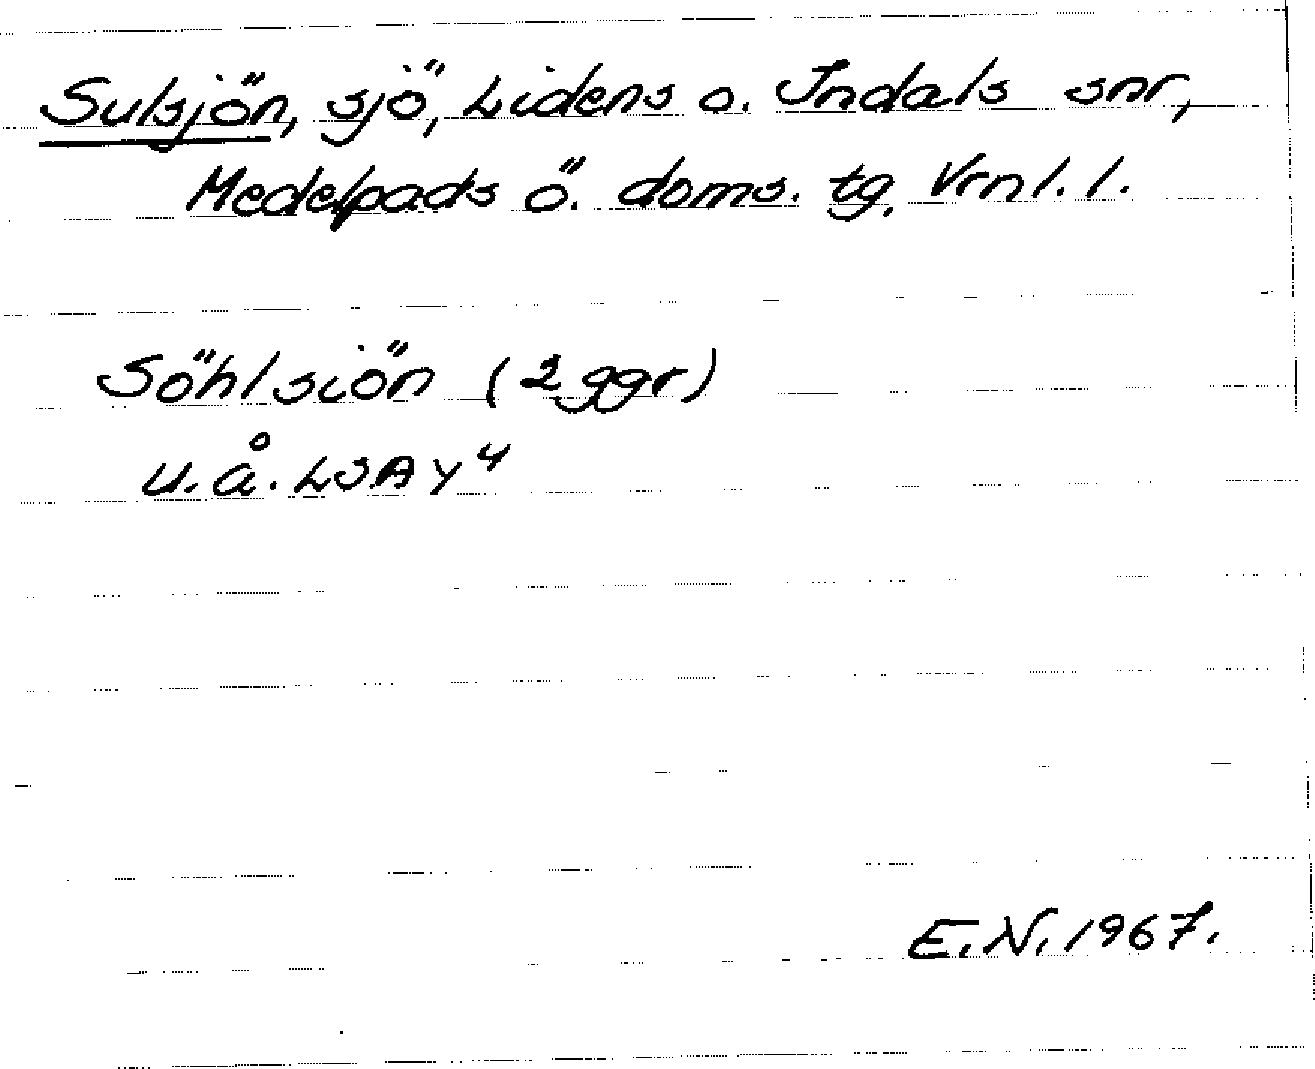 Sulsjön, sjö, Lidens o. Indals snr,
Medelpads ö. doms. tg, Vrnl. l.
Söhlsiön (2 ggr)
u.å. LSA Y4
E.N. 1967.